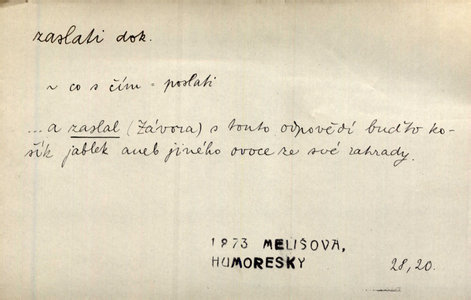 zaslati dok.
~ co s čím = poslati
...a zaslal (Závora) s touto odpovědí buďto ko-
šík jablek aneb jiného ovoce ze své zahrady.
1973 MELIŠOVA,
HUMORESKY
28,20.